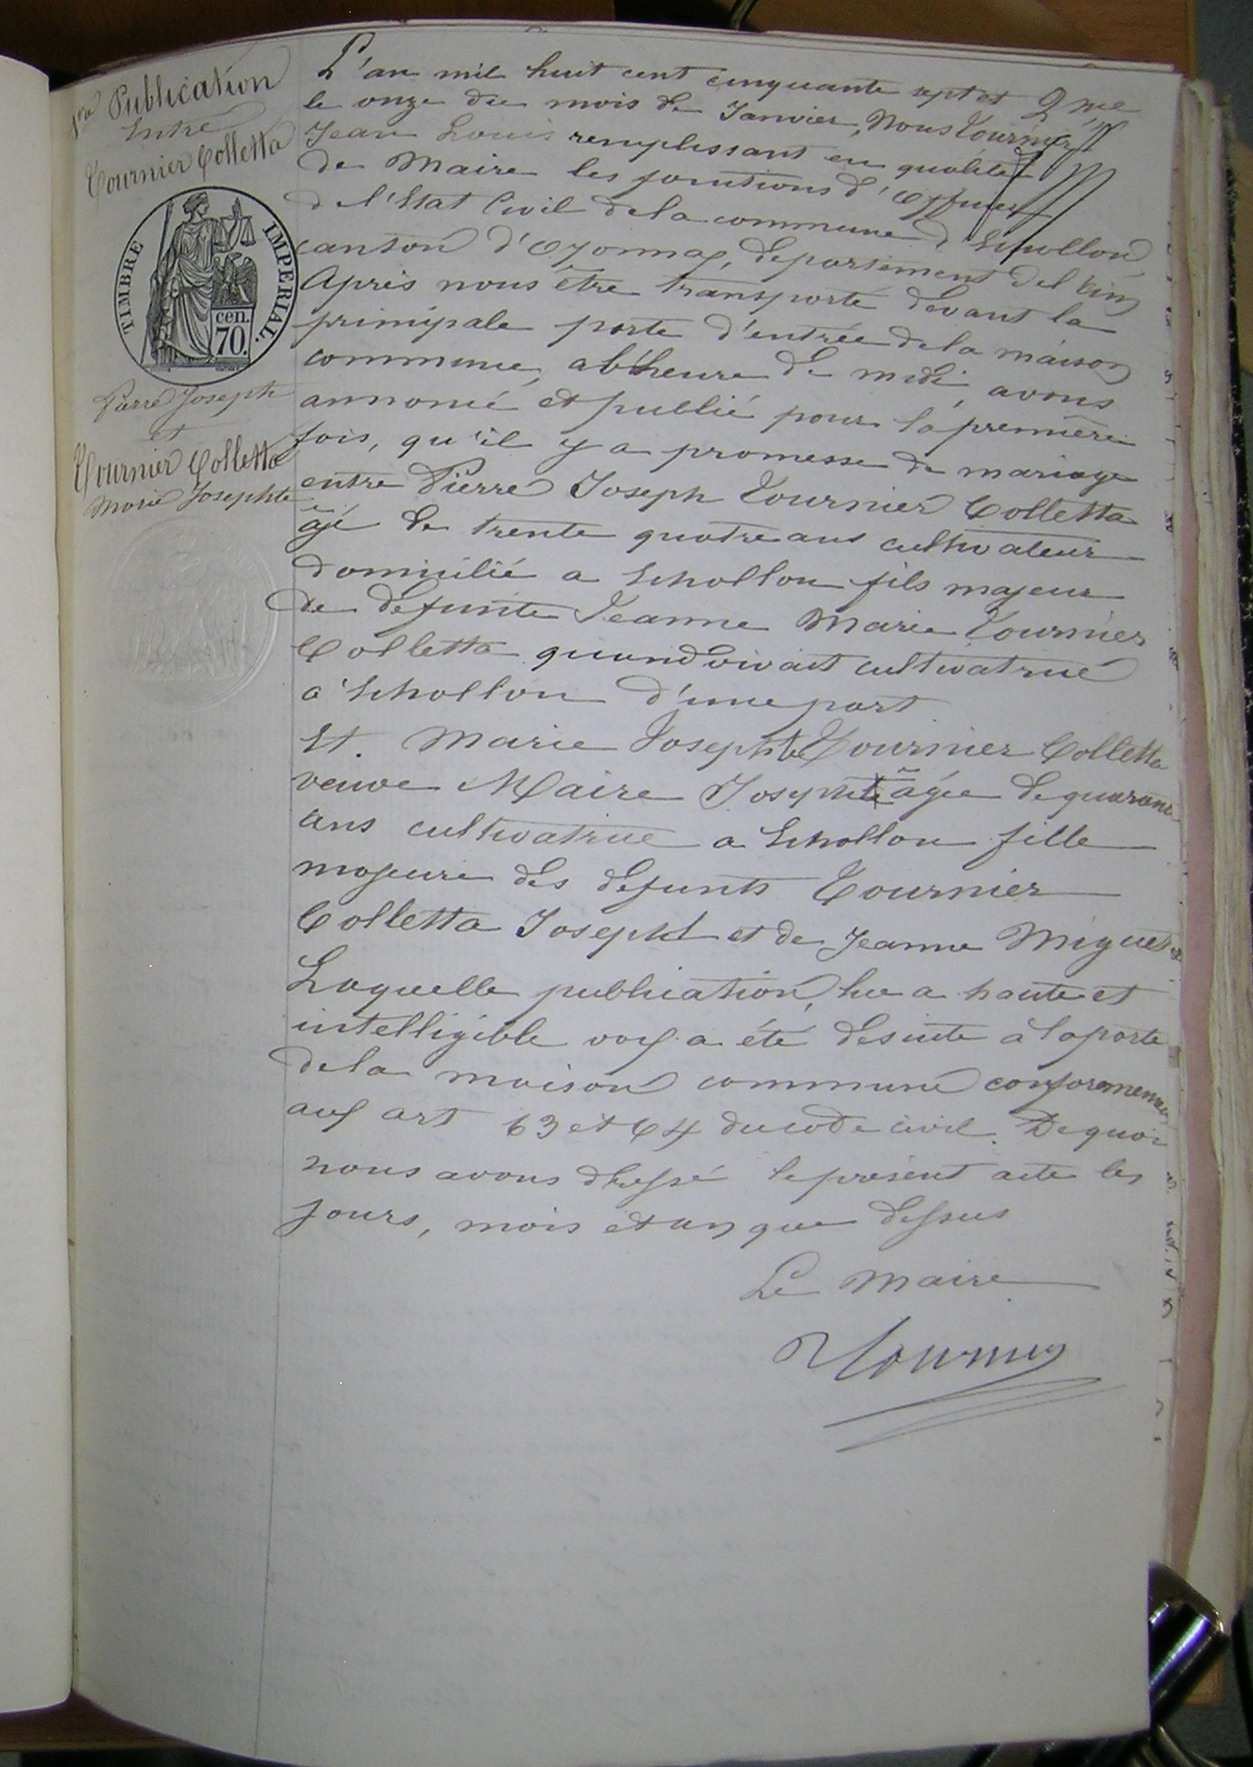 1re Publication
Entre
Tournier Colletta
TIMBRE IMPERIAL.
cen.
70.
Pierre Joseph
et
Tournier Colletta
Marie Josephte
L'an mil huit cent cinquante sept et
2me
le onze du mois de Janvier, Nous Tournier
Jean Louis remplissant en qualité
de Maire les fonctions d'Officier
de l'Etat Civil de la commune d'Echallon
canton d'Oyonnax, departement del'ain
Après nous être transporté devant la
principale porte d'entrée dela maison
commune, a l'heure de midi, avons
annoncé et publié pour la première
fois, qu'il y a promesse de mariage
entre Pierre Joseph Tournier Colletta
âgé de trente quatre ans cultivateur
domicilié a Echallon fils majeur
de defunte Jeanne Marie Tournier
Colletta quand vivait cultivatrice
a Echallon d'une part
Et. Marie Josephte Tournier Colletta
veuve Maire Joseph âgée de quarante
ans cultivatrice a Echallon fille
majeure des defunts Tournier
Colletta Joseph et de Jeanne
Laquelle publication, lue a haute et
intelligible voix a été desuite à laporte
dela maison commune conformement
aux art 63 et 64 ducode civil. Dequoi
nous avons dressé leprésent acte les
jours, mois et an que dessus
Le Maire
Tournier